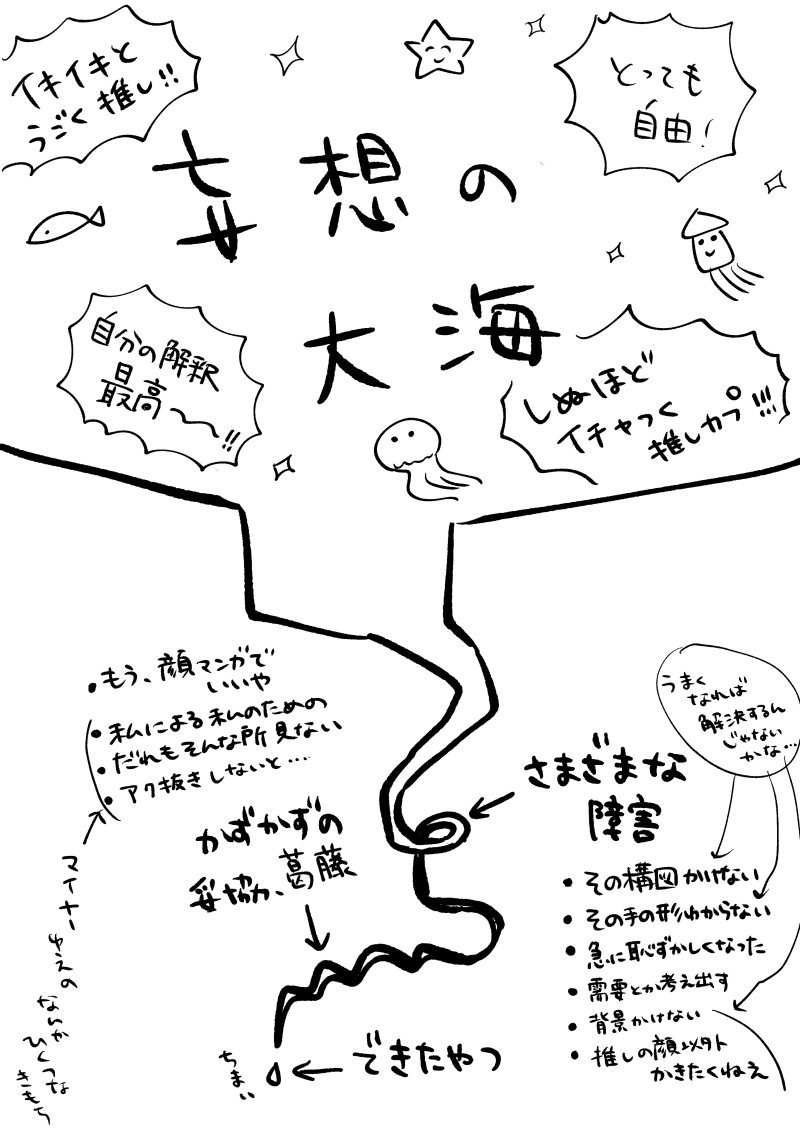 イキイキと
うごく推し!!
とっても
自由!
妄想の
大海
自分の解釈
最高〜〜!!
しぬほど
イチャつく
推しカプ!!!
・もう、顔マンガで
いいや
・私による私のための
・だれもそんな所見ない
・アク抜きしないと…
マイナー
ゆえの
なんか
ひくつな
きもち
うまく
なれば
解決するん
じゃない
かな…
さまざまな
障害
かずかずの
妥協、葛藤
・その構図かけない
・その手の形わからない
・急に恥ずかしくなった
・需要とか考え出す
・背景かけない
・推しの顔以外
かきたくねえ
できたやつ
ちまい